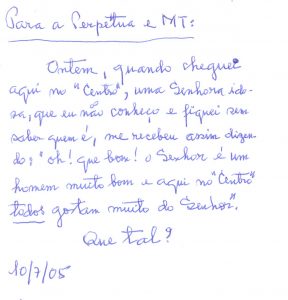 Para a Perpetua e MT:
Ontem, quando cheguei
aqui no "Centro", uma Senhora ido-
sa, que eu não conheço e fiquei sem
saber quem é, me recebeu assim dizen-
do: "oh! que bom! o Senhor é um
homem muito bom e aqui no "Centro"
todos gostam muito do Senhor".
Que tal?
10/7/05